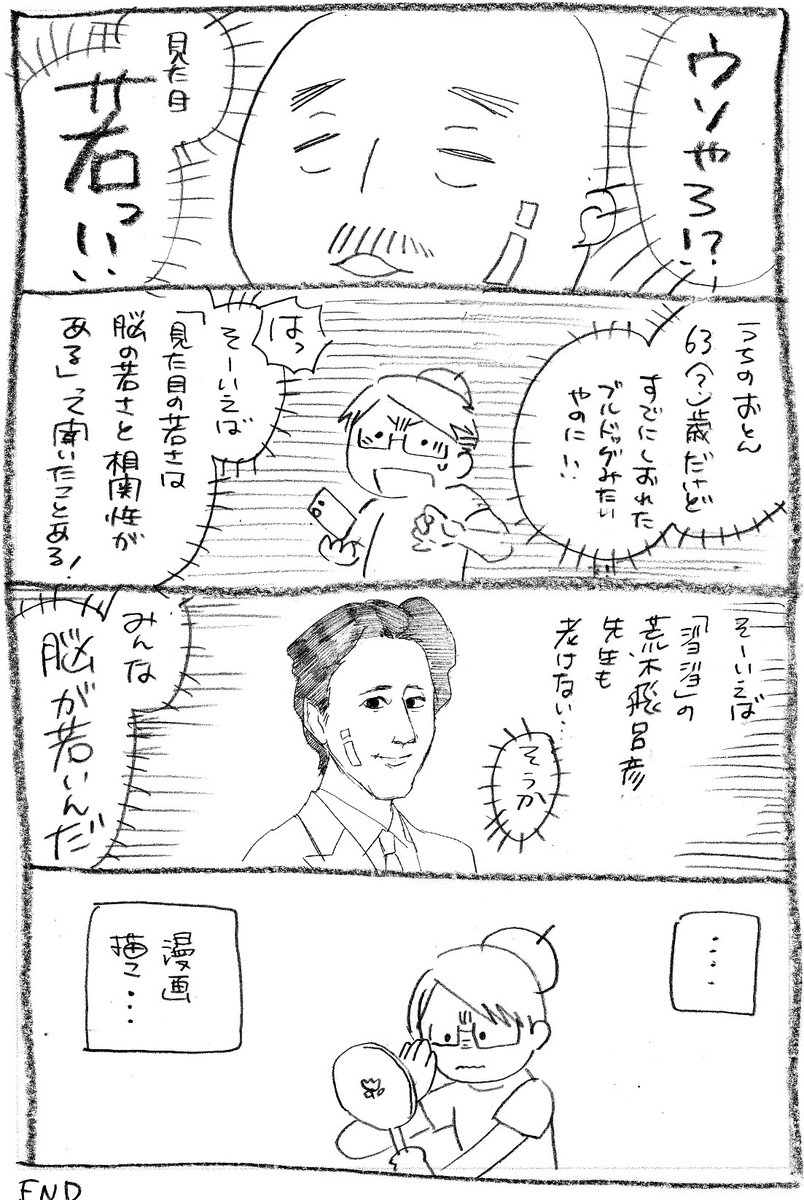 ウソやろ!?
見た目
若っい
うちのおとん
63(?)歳だけど
すでにしおれた
ブルドッグみたい
やのに…
はっ
そーいえば
「見た目の若さは
脳の若さと相関性が
ある」って聞いたことある!
そーいえば
「ジョジョ」の
荒木飛呂彦
先生も
老けない…
そうか
みんな
脳が若いんだ
‥‥
漫画
描こ・・・
END